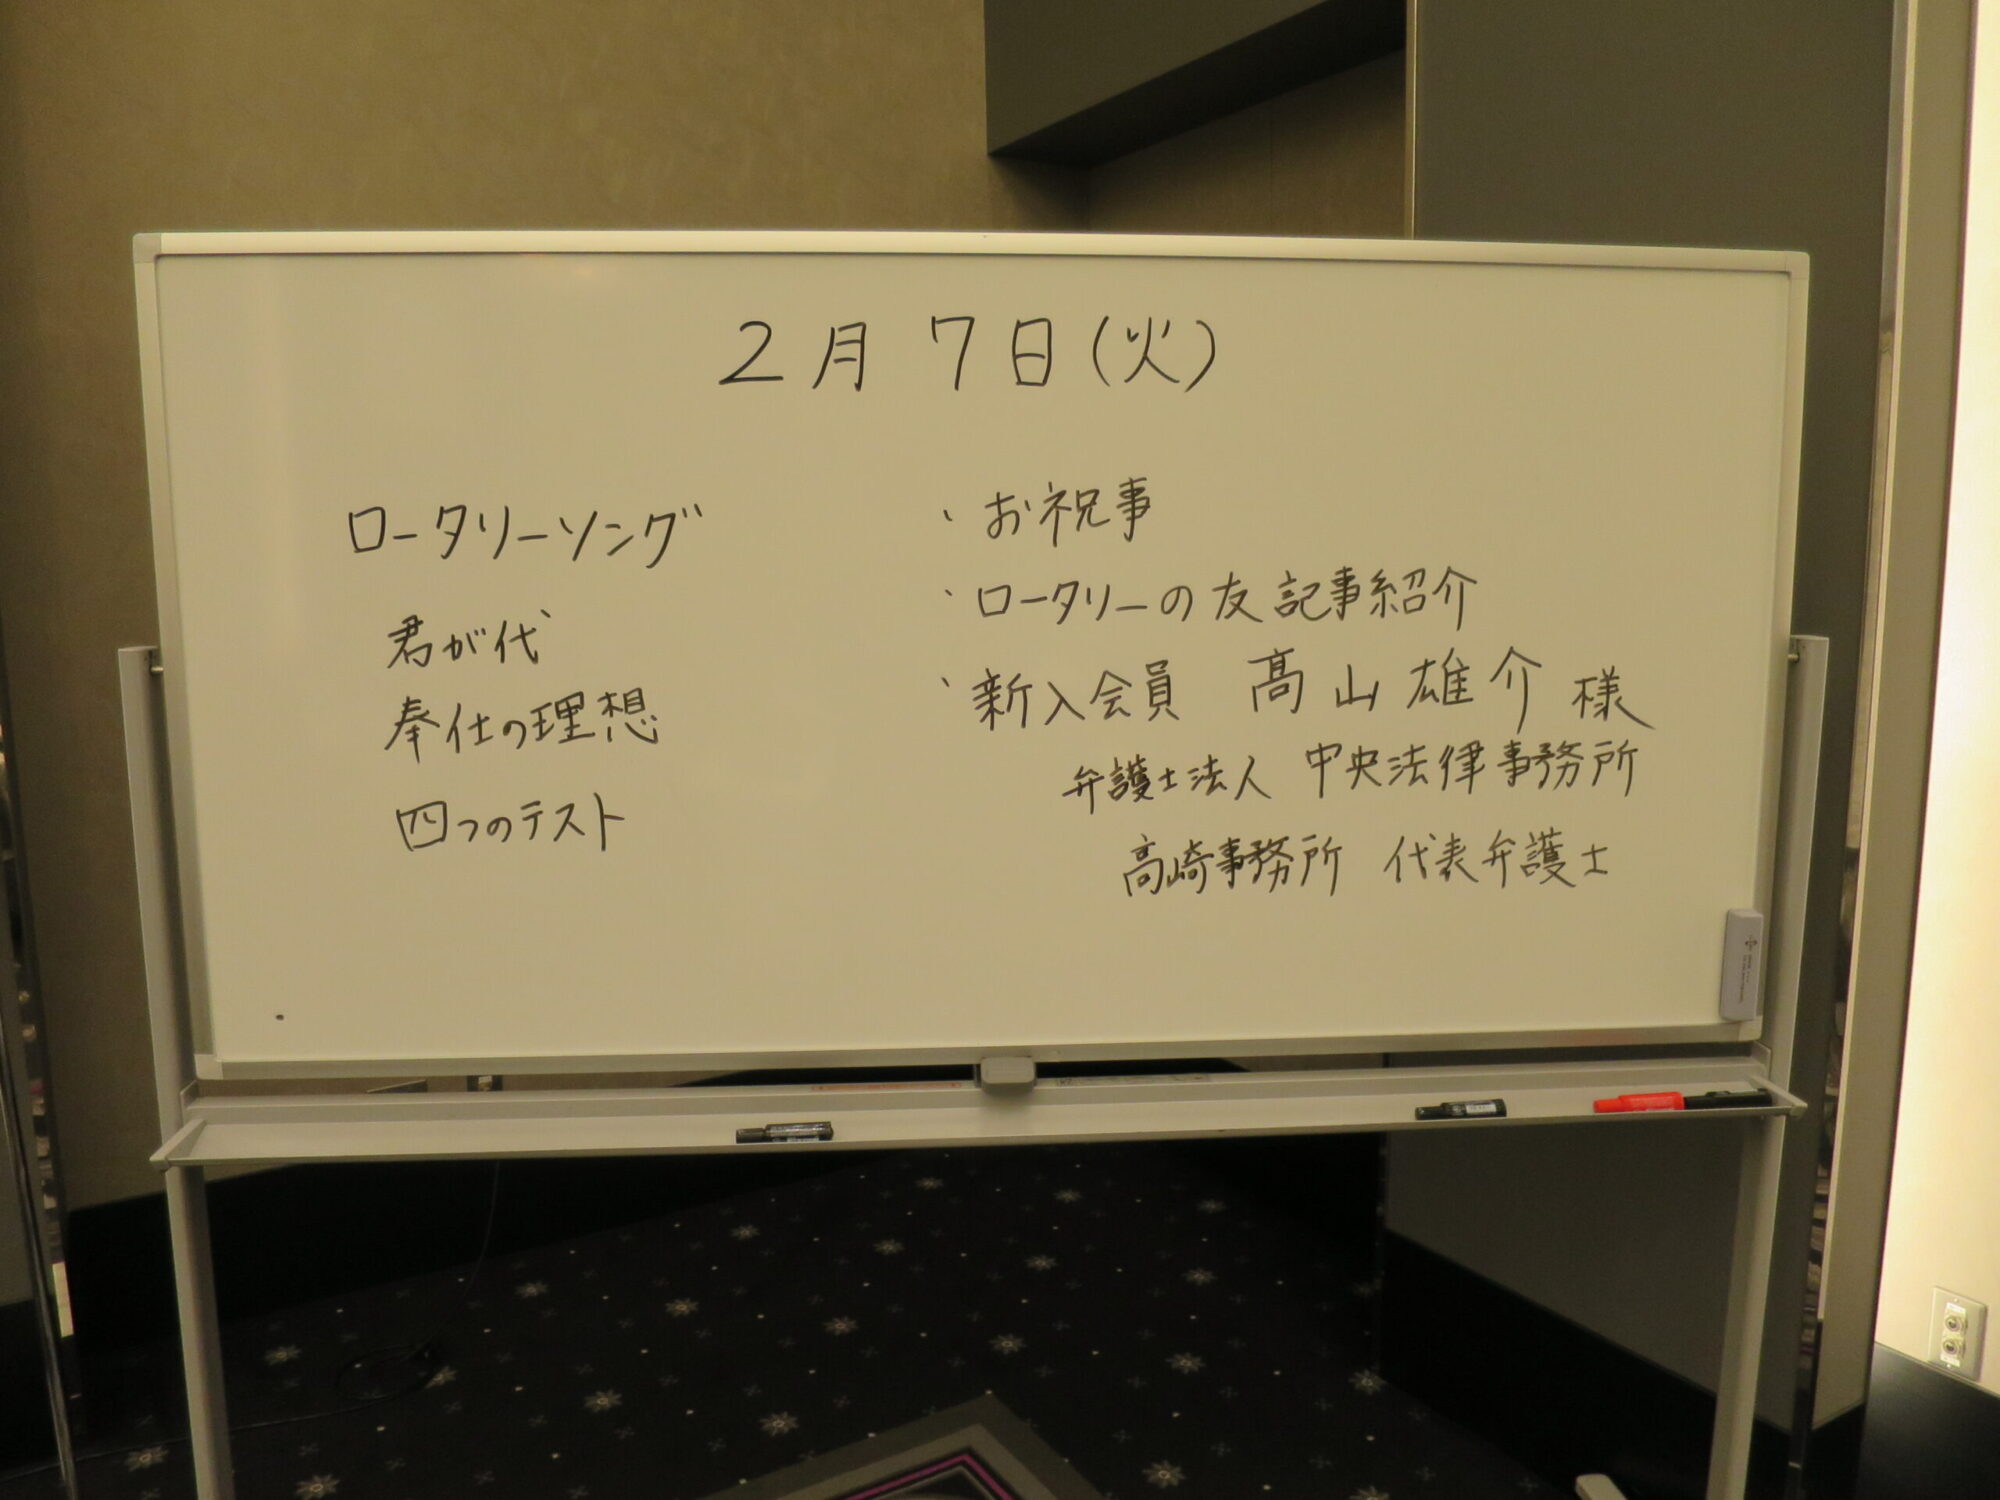 2月7日(火)
ロータリーソング
君が代
奉仕の理想
四つのテスト
・お祝事
・ロータリーの友記事紹介
・新入会員 髙山雄介様
弁護士法人 中央法律事務所
高崎事務所 代表弁護士